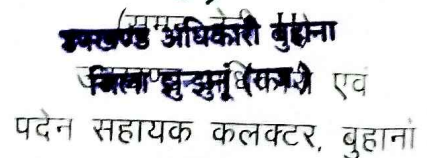 उपखण्ड अधिकारी बुहाना
जिला झुन्झुनूं (राज.) एवं
पदेन सहायक कलक्टर, बुहाना